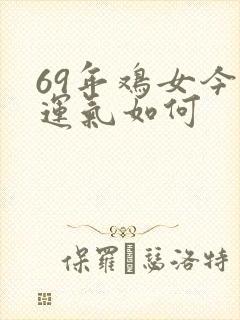 69年鸡女今
運氣如何
保羅·瑟洛特